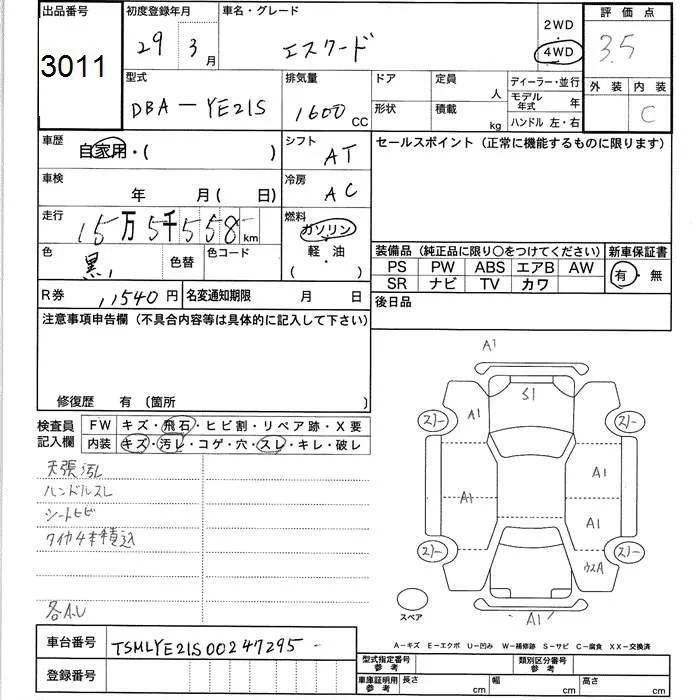 出品番号 初度登録年月 車名・グレード 評価点
3011 29 3月 エスクード 2WD 4WD 3.5
型式 排気量 ドア 定員 人 ディーラー・並行 外装 内装
DBA-YE21S 1600 CC 形状 積載 kg モデル年式 年 C
ハンドル 左・右
車歴 自家用・( ) シフト AT セールスポイント (正常に機能するものに限ります)
車検 年 月(日) 冷房 AC
走行 15万5千558km 燃料 ガソリン・軽油 ( )
色 黒 色替 色コード
装備品 (純正品に限り○をつけてください) 新車保証書
PS PW ABS エアB AW 有・無
SR ナビ TV カワ
R券 11540円 名変通知期限 月 日 後日品
注意事項申告欄 (不具合内容等は具体的に記入して下さい)
修復歴 有 (箇所 )
検査員記入欄 FW キズ・飛石・ヒビ割・リペア跡・X要
内装 キズ・汚レ・コゲ・穴・スレ・キレ・破レ
天張汚レ
ハンドルスレ
シートヒビ
タイヤ4本積込
各A.U
A1
S1
A1
スリー スリー
A1
A1
A1
スリー スリー
ウスA
スペア
A1
A-キズ E-エクボ U-凹み W-補修跡 S-サビ C-腐食 XX-交換済
車台番号 TSMLYE21S00247295
登録番号
型式指定番号 参考 類別区分番号 参考
車庫証明用 参考 長さ cm 幅 cm 高さ cm